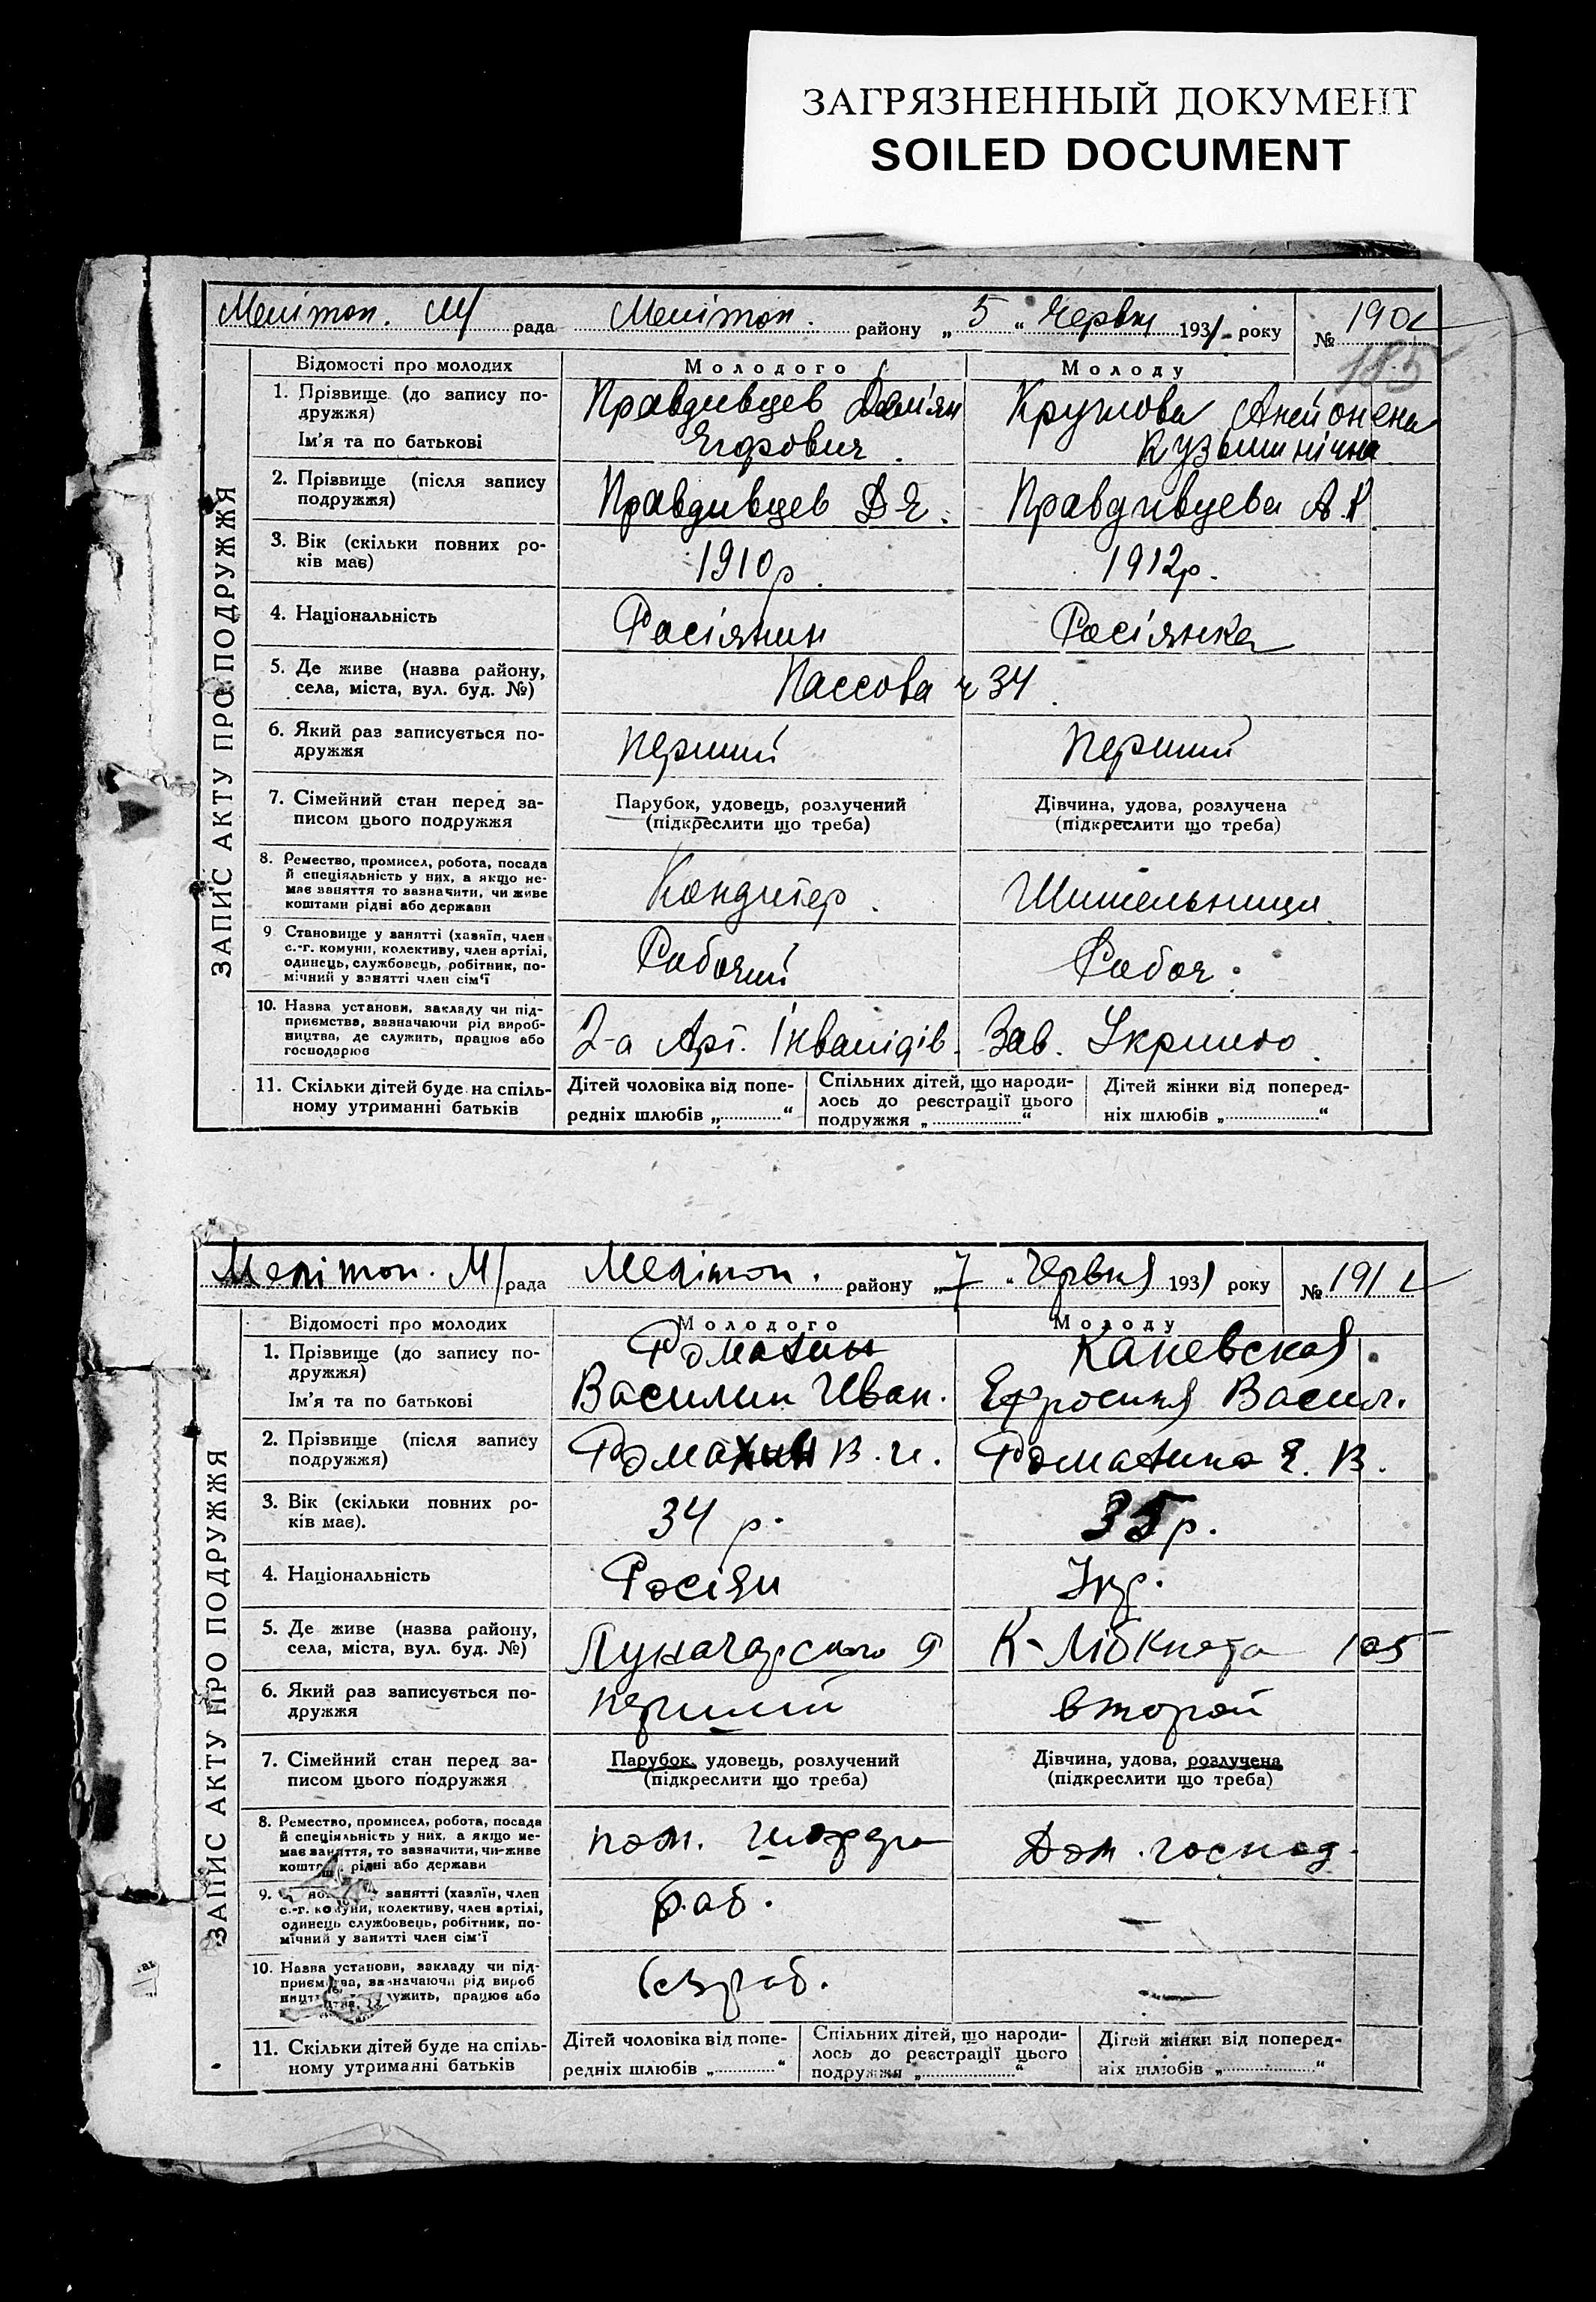 ЗАГРЯЗНЕННЫЙ ДОКУМЕНТ
SOILED DOCUMENT
Мелітоп. М/ рада Мелітоп. району „ 5 “ Червня 1931 року № 190
185
ЗАПИС АКТУ ПРО ПОДРУЖЖЯ
Відомості про молодих Молодого Молоду
1. Прізвище (до запису по- Правдивцев Дем'ян Круглова
дружжя)
Ім'я та по батькові Єгорович. Кузьминічна
2. Прізвище (після запису Правдивцев Д Є. Правдивцева А.К.
подружжя)
3. Вік (скільки повних ро- 1910р. 1912р.
ків має)
4. Національність Росіянин Росіянка
5. Де живе (назва району, 34
села, міста, вул. буд. №)
6. Який раз записується по- перший перший
дружжя
7. Сімейний стан перед за- Парубок, удовець, розлучений Дівчина, удова, розлучена
писом цього подружжя (підкреслити що треба) (підкреслити що треба)
8. Ремество, промисел, робота, посада
й спеціяльність у них, а якщо не- Кондитер.
має заняття то зазначити, чи живе
коштами рідні або держави
9 Становище у занятті (хазяїн, член
с.-г. комуни, колективу, член артілі, Робочий Робоч.
одинець, службовець, робітник, по-
мічний у занятті член сім'ї
10. Назва установи, закладу чи під-
приємства, зазначаючи рід вироб- 2-а Арт. Інвалідів. Зав.
ництва, де служить, працює або
господарює
11. Скільки дітей буде на спіль- Дітей чоловіка від попе- Спільних дітей, що народи- Дітей жінки від поперед-
ному утриманні батьків редніх шлюбів „ “ лось до реєстрації цього ніх шлюбів „ “
подружжя „ “
Мелітоп. М/ рада Мелітоп. району „ 7 “ Червня 1931 року № 191
ЗАПИС АКТУ ПРО ПОДРУЖЖЯ
Відомості про молодих Молодого Молоду
1. Прізвище (до запису по- Ромахин Каневская
дружжя)
Ім'я та по батькові Василий Иван. Ефросиния Васил.
2. Прізвище (після запису Ромахин В. И. Ромахина Е. В.
подружжя)
3. Вік (скільки повних ро- 34 р. 35 р.
ків має).
4. Національність Росіян Укр.
5. Де живе (назва району, Луначарського 9 К-Лібкнехта 105
села, міста, вул. буд. №)
6. Який раз записується по- перший второй
дружжя
7. Сімейний стан перед за- Парубок, удовець, розлучений Дівчина, удова, розлучена
писом цього подружжя (підкреслити що треба) (підкреслити що треба)
8. Ремество, промисел, робота, посада
й спеціяльність у них, а якщо не- пом. шофера Дом. господ.
має заняття, то зазначити, чи-живе
рідні або держави
9. занятті (хазяїн, член
с.-г. комуни, колективу, член артілі, раб. —
одинець службовець, робітник, по-
мічний у занятті член сім'ї
10. Назва установи, закладу чи під-
зазначаючи рід вироб безраб. —
працює або
11. Скільки дітей буде на спіль- Дітей чоловіка від попе- Спільних дітей, що народи- Дітей жінки від поперед-
ному утриманні батьків редніх шлюбів „ “ лось до реєстрації цього ніх шлюбів „ “
подружжя „ “